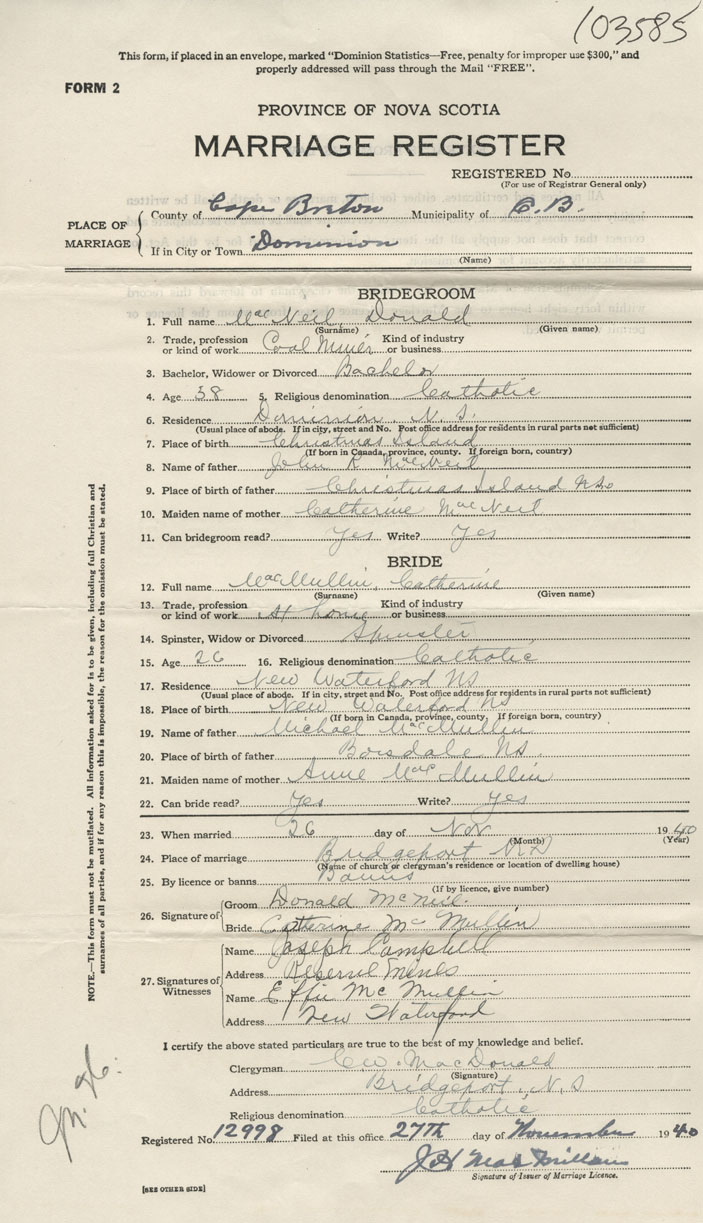 103585
This form, if placed in an envelope, marked "Dominion Statistics—Free, penalty for improper use $300," and
properly addressed will pass through the Mail "FREE".
FORM 2
PROVINCE OF NOVA SCOTIA
MARRIAGE REGISTER
REGISTERED No.
(For use of Registrar General only)
PLACE OF MARRIAGE
County of Cape Breton Municipality of C.B.
If in City or Town Dominion
(Name)
BRIDEGROOM
1. Full name MacNeil, Donald
(Surname) (Given name)
2. Trade, profession or kind of work Coal Miner Kind of industry or business
3. Bachelor, Widower or Divorced Bachelor
4. Age 38 5. Religious denomination Catholic
6. Residence Dominion N.S.
(Usual place of abode. If in city, street and No. Post office address for residents in rural parts not sufficient)
7. Place of birth Christmas Island
(If born in Canada, province, county. If foreign born, country)
8. Name of father John R. MacNeil
9. Place of birth of father Christmas Island N.S.
10. Maiden name of mother Catherine MacNeil
11. Can bridegroom read? Yes Write? Yes
BRIDE
12. Full name MacMullin, Catherine
(Surname) (Given name)
13. Trade, profession or kind of work At home Kind of industry or business
14. Spinster, Widow or Divorced Spinster
15. Age 26 16. Religious denomination Catholic
17. Residence New Waterford NS
(Usual place of abode. If in city, street and No. Post office address for residents in rural parts not sufficient)
18. Place of birth New Waterford NS
(If born in Canada, province, county. If foreign born, country)
19. Name of father Michael MacMullin
20. Place of birth of father Boisdale NS.
21. Maiden name of mother Anne MacMullin
22. Can bride read? Yes Write? Yes
23. When married 26 day of Nov 1940
(Month) (Year)
24. Place of marriage Bridgeport N.S.
(Name of church or clergyman's residence or location of dwelling house)
25. By licence or banns Banns
(If by licence, give number)
26. Signature of
Groom Donald McNeil.
Bride Catherine McMullin
27. Signatures of Witnesses
Name Joseph Campbell
Address Reserve Mines
Name Effie McMullin
Address New Waterford
I certify the above stated particulars are true to the best of my knowledge and belief.
Clergyman C.W. MacDonald
(Signature)
Address Bridgeport, N.S
Religious denomination Catholic
Registered No. 12998 Filed at this office 27TH day of November 1940
J H MacMillan
Signature of Issuer of Marriage Licence.
[SEE OTHER SIDE]
NOTE.—This form must not be mutilated. All information asked for is to be given, including full Christian and
surnames of all parties, and if for any reason this is impossible, the reason for the omission must be stated.